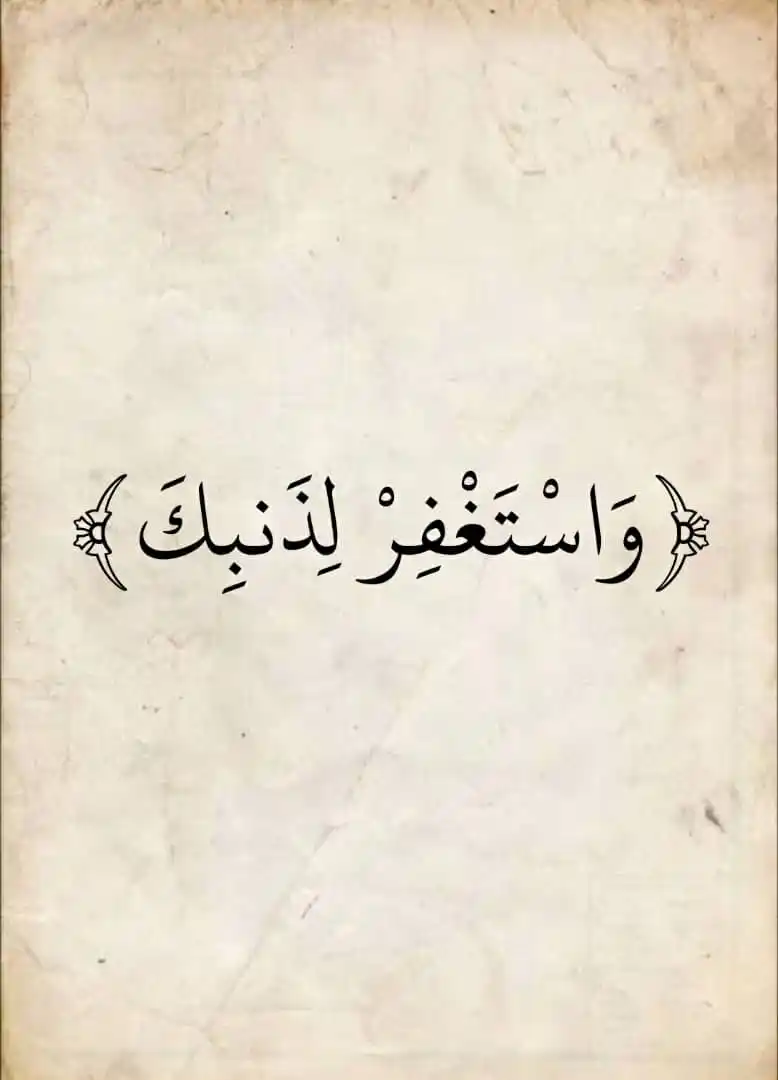 ﴿ وَاسْتَغْفِرْ لِذَنبِكَ ﴾